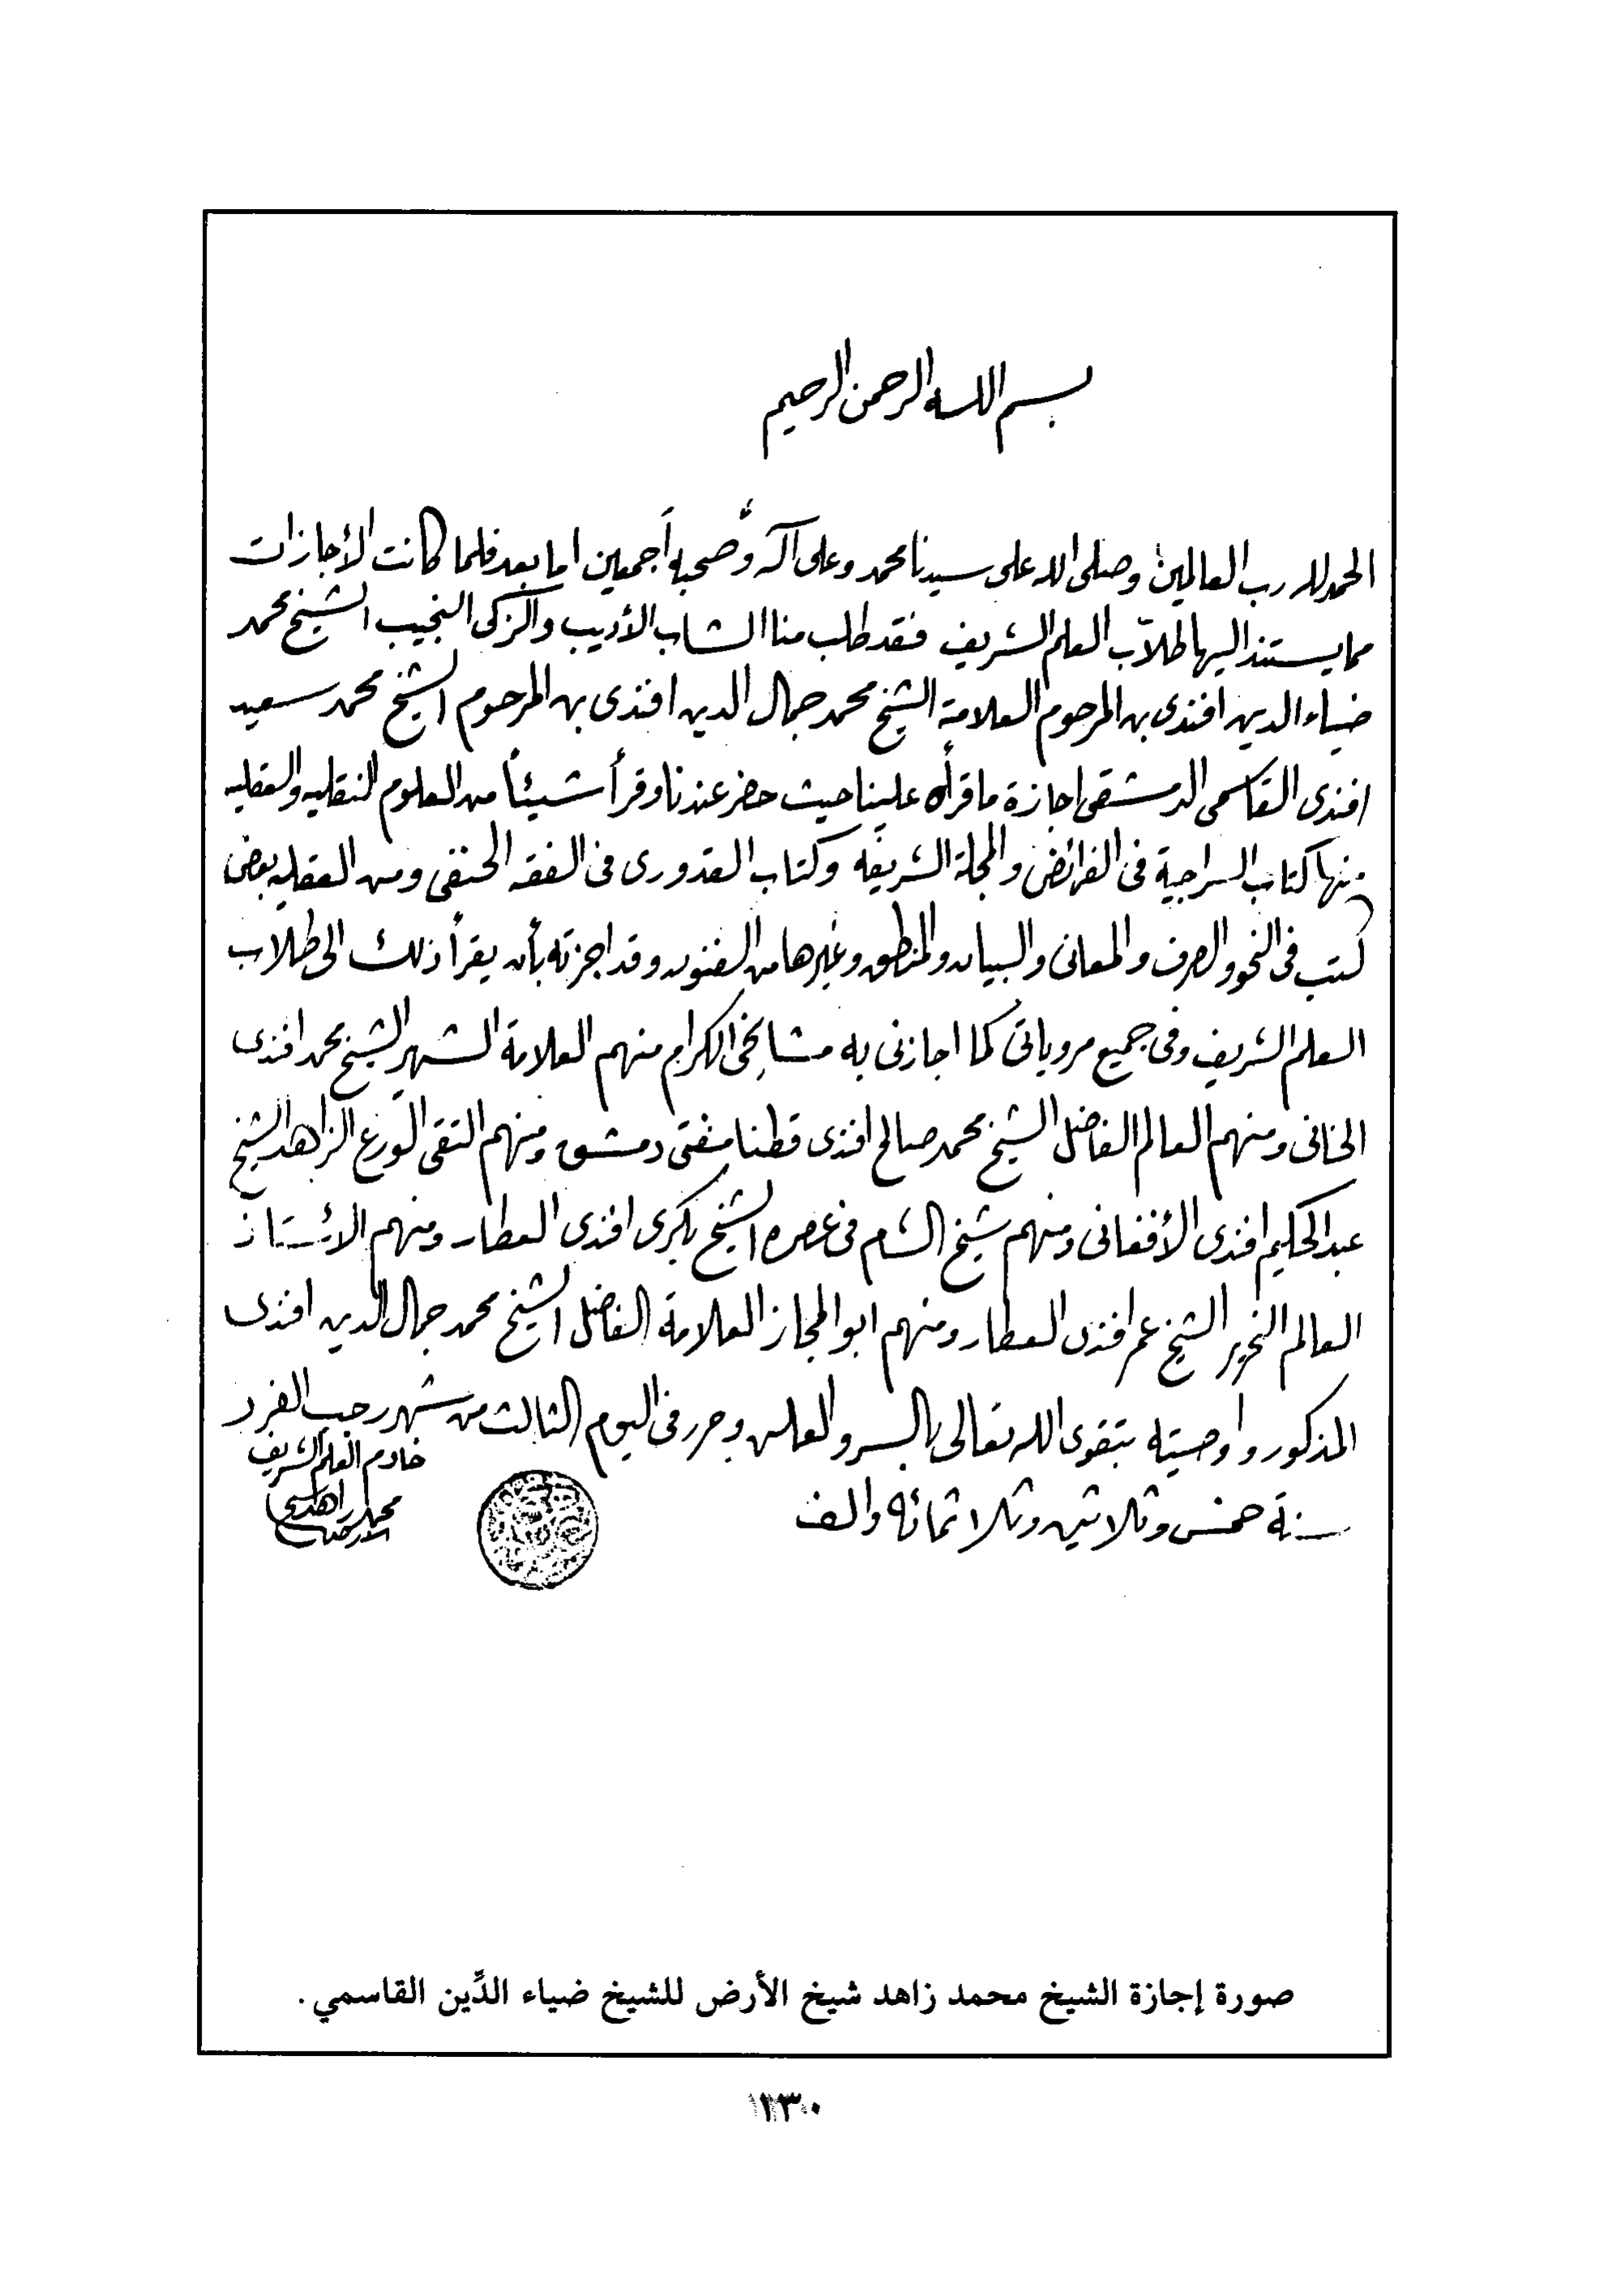 بسم الله الرحمن الرحيم
الحمد لله رب العالمين وصلى الله على سيدنا محمد وعلى آله وصحبه أجمعين اما بعد فلما كانت الأجازات
مما يستند اليها طلاّب العلم الشريف فقد طلب منا الشاب الأديب والزكى النجيب الشيخ محمد
ضياء الدين افندى بن المرحوم العلامة الشيخ محمد جمال الدين افندى بن المرحوم الشيخ محمد سعيد
افندى القاسمى الدمشقى اجازة ما قرأه علينا حيث حضر عندنا وقرأ شيئاً من العلوم النقليه والعقليه
منها كتاب السراجية فى الفرائض والمجلة الشريفه وكتاب القدورى فى الفقه الحنفى ومن العقليه بعض
كتب فى النحو والصرف والمعانى والبيان والمنطق وغيرها من الفنون وقد اجزته بأن يقرأ ذلك الى طلاب
العلم الشريف وفى جميع مروياتى كما اجازنى به مشايخى الكرام منهم العلامة الشهير الشيخ محمد افندى
الخانى ومنهم العالم الفاضل الشيخ محمد صالح افندى قطنا مفتى دمشق ومنهم التقى الورع الزاهد الشيخ
عبد الحكيم افندى الأفغانى ومنهم شيخ الشام فى عصره الشيخ بكرى افندى العطار ومنهم الاستاذ
العالم النحرير الشيخ عمر افندى العطار ومنهم ابو المجاز العلامة الفاضل الشيخ محمد جمال الدين افندى
المذكور واوصيته بتقوى الله تعالى بالسر والعلن وحرر فى اليوم الثالث من شهر رجب الفرد
سنة خمس وثلاثين وثلاثمائه والف
خادم العلم الشريف
محمد زاهد
صورة إجازة الشيخ محمد زاهد شيخ الأرض للشيخ ضياء الدِّين القاسمي.
١٢٣٠